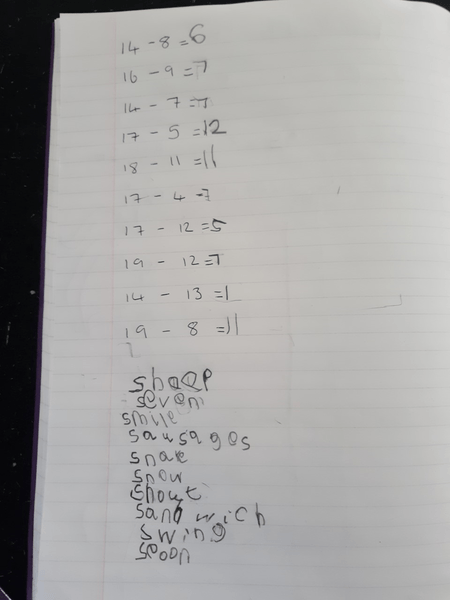 14 - 8 = 6
16 - 9 = 7
14 - 7 = 7
17 - 5 = 12
18 - 11 = 11
17 - 4 = 7
17 - 12 = 5
19 - 12 = 7
14 - 13 = 1
19 - 8 = 11
seven
smile
sausages
snake
snow
shout
sandwich
swing
spoon